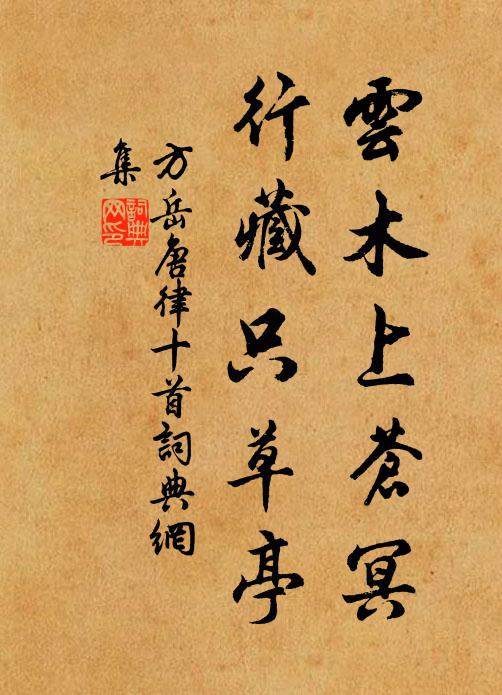 雲木上蒼冥
行藏只草亭
方岳唐律十首詞典網
集
詞典
网印